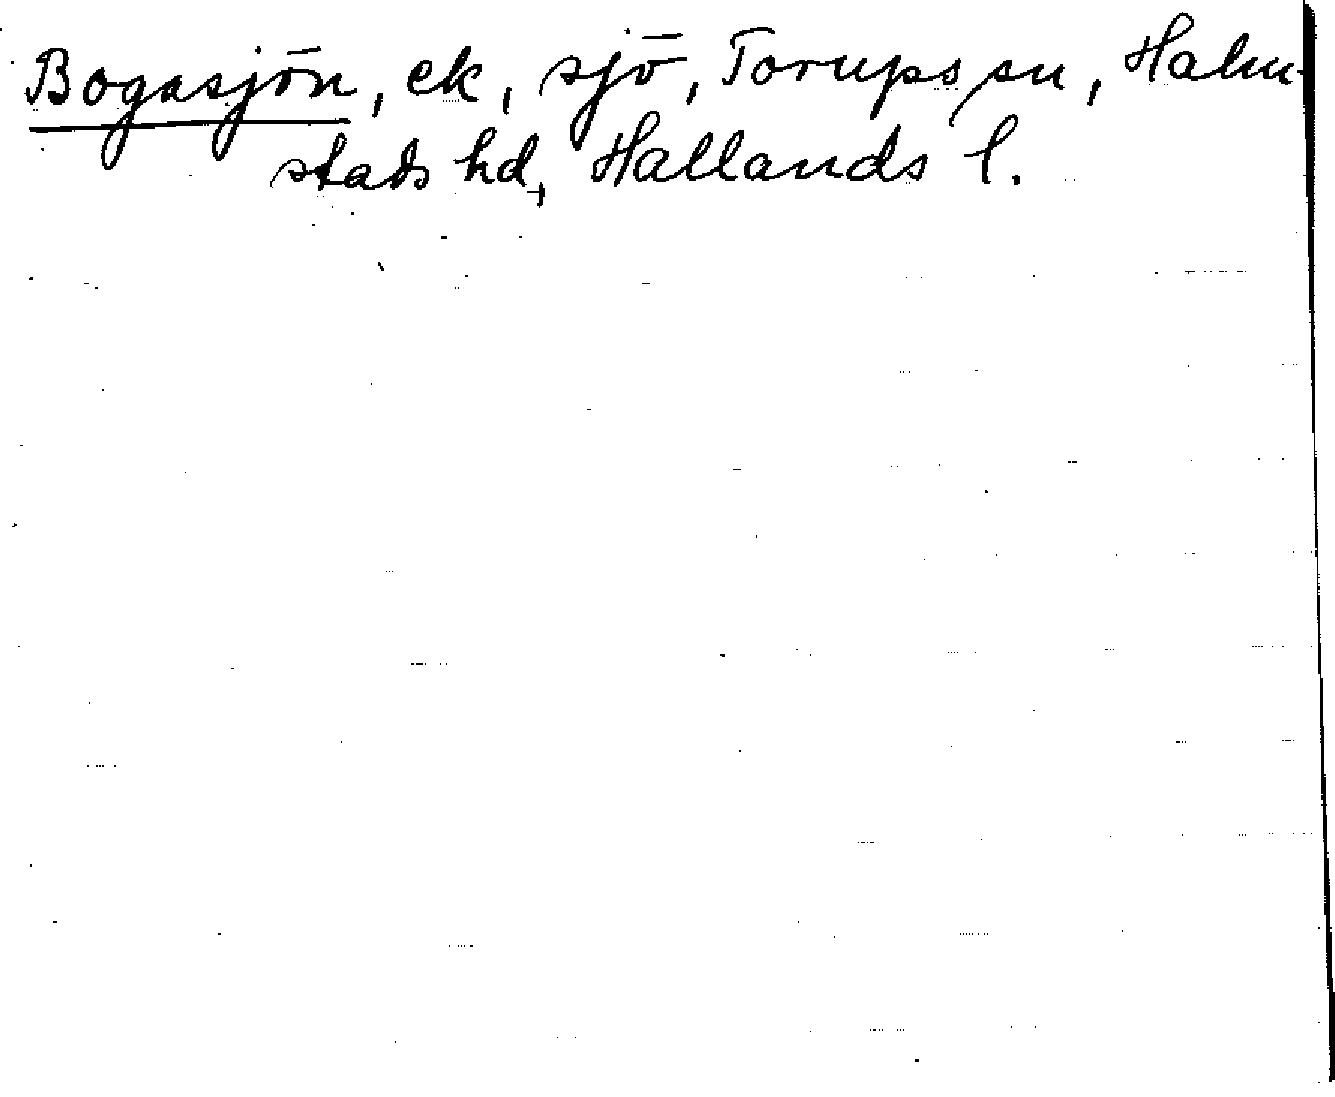 Bogasjön, ek, sjö, Torups sn, Halm-
stads hd, Hallands l.